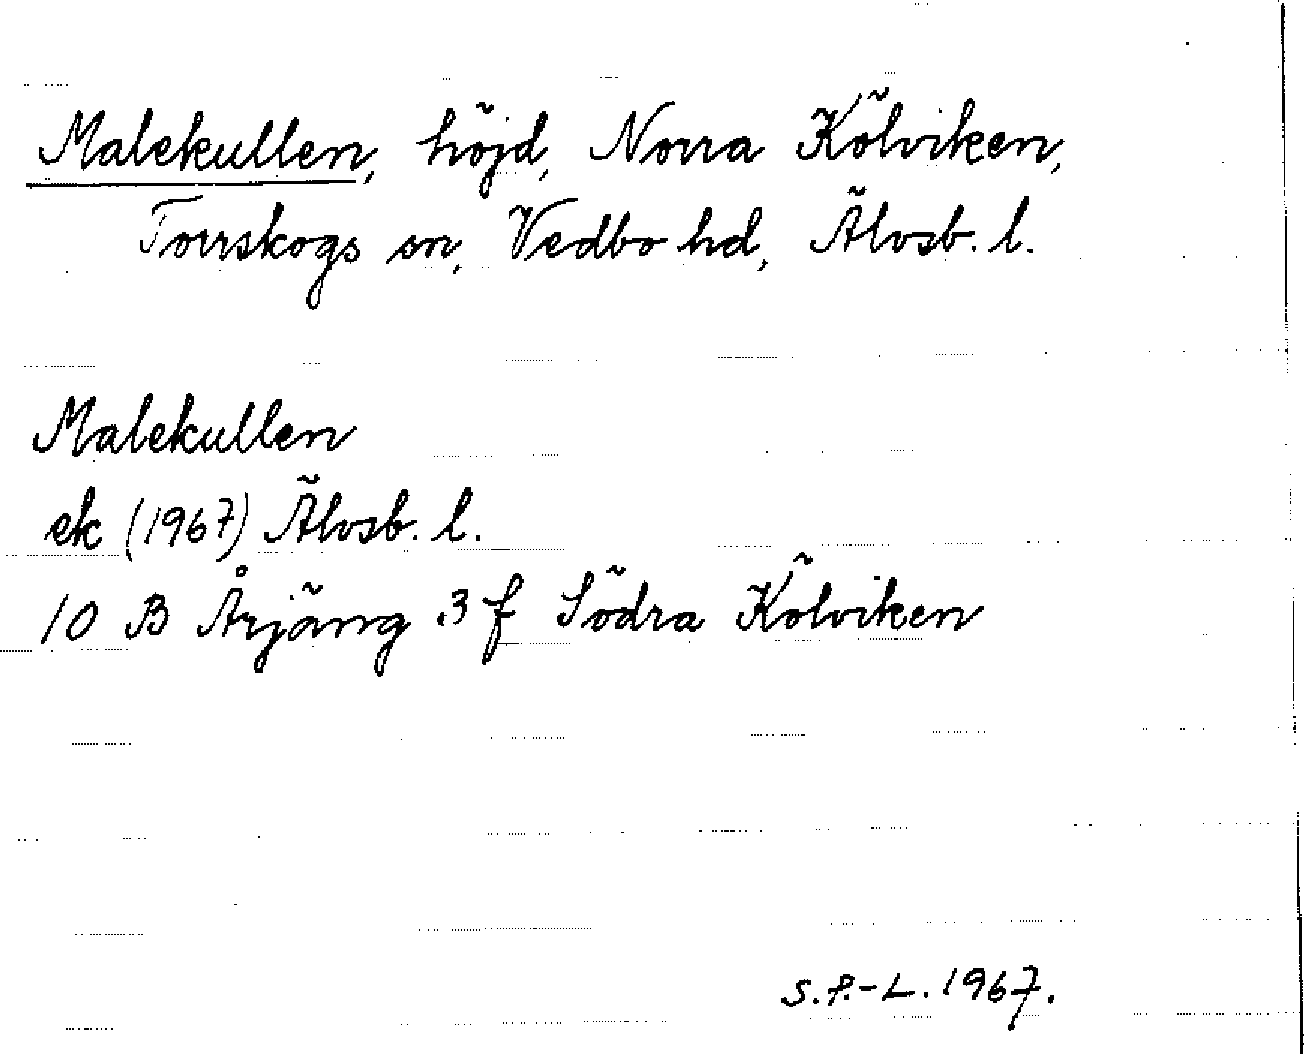 Malekullen, höjd, Norra Kölviken,
Torrskogs sn, Vedbo hd, Älvsb. l.
Malekullen
ek (1967) Älvsb. l.
10 B Årjäng .3 f Södra Kölviken
S.P.-L. 1967.